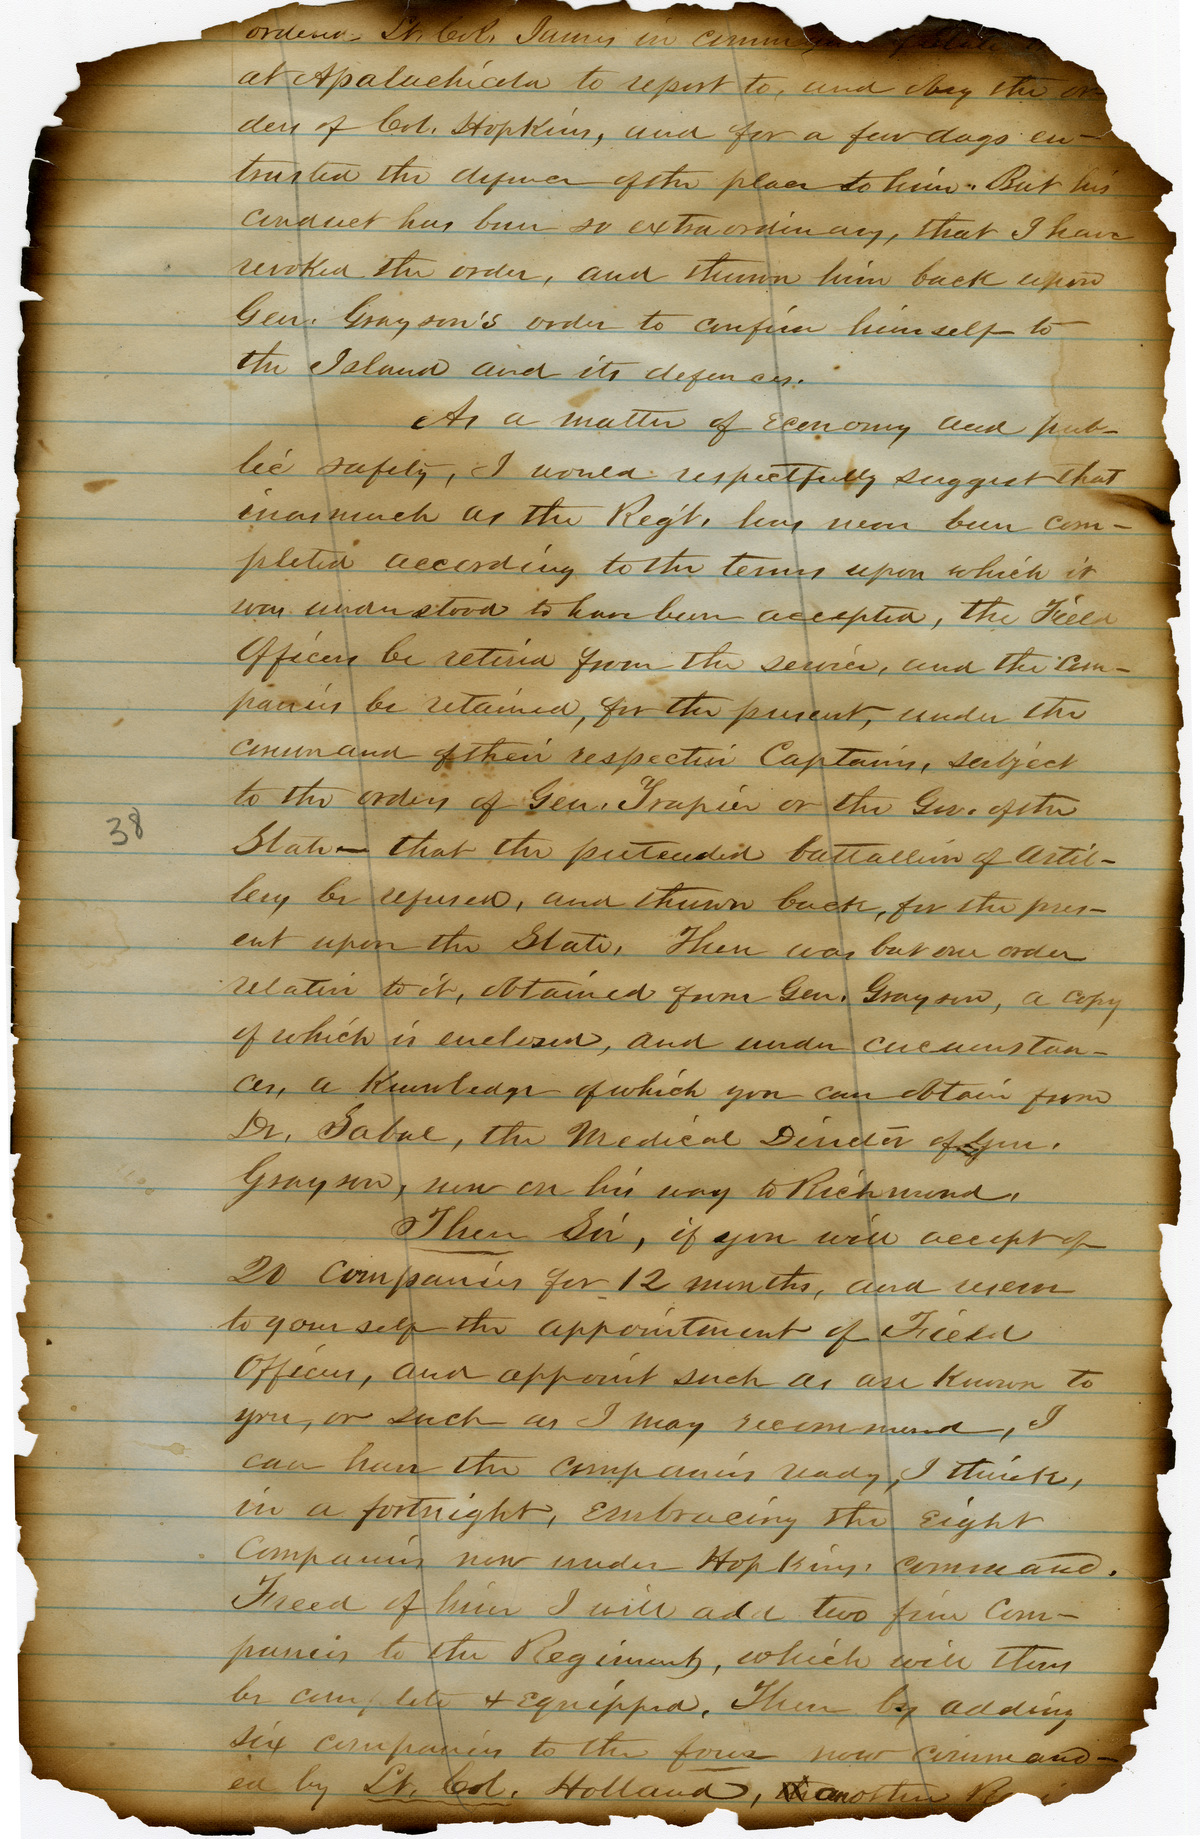 ordered Lt. Col. James in
at Apalachicola to report to, and obey the or-
ders of Col. Hopkins, and for a few days en-
trusted the defence of the place to him. But his
conduct has been so extraordinary, that I have
revoked the order, and thrown him back upon
Gen. Grayson's order to confine himself to
the Island and its defences.
As a matter of Economy and pub-
lic safety, I would respectfully suggest that
inasmuch as the Reg't. has never been com-
pleted according to the terms upon which it
was understood to have been accepted, the Field
Officers be retired from the service, and the com-
panies be retained, for the present, under the
command of their respective Captains, subject
to the orders of Gen. Trapier or the Gov. of the
State — that the pretended battallion of Artil-
lery be refused, and thrown back, for the pres-
ent upon the State. There was but one order
relative to it, obtained from Gen. Grayson, a copy
of which is enclosed, and under circumstan-
ces, a Knowledge of which you can obtain from
Dr. Gabal, the Medical Director of Gen.
Grayson, now on his way to Richmond.
Then Sir, if you will accept of
20 companies for 12 months, and reserve
to yourself the appointment of Field
Officers, and appoint such as are Known to
you, or such as I may recommend, I
can have the companies ready, I think,
in a fortnight, embracing the eight
companies now under Hopkins' command.
Freed of him I will add two fine com-
panies to the Regiment, which will thus
be complete & Equipped. Then by adding
six companies to the four now command-
ed by Lt. Col. Holland, another
38